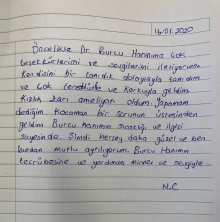 16.01.2020
Öncelikle Dr. Burcu Hanıma çok
teşekkürlerimi ve sevgilerimi iletiyorum
Kendisini bir tanıdık dolayısıyla tanıdım
ve çok tereddütle ve korkuyla geldim
Kızlık zarı ameliyatı oldum. Yapamam
dediğim kocaman bir sorunun üstesinden
geldim. Burcu hanımın sıcaklığı ve ilgisi
sayesinde. Şimdi herşey daha güzel ve ben
burdan mutlu ayrılıyorum. Burcu Hanımın
tecrübesine ve yardımına minnet ve sevgiyle
N.C